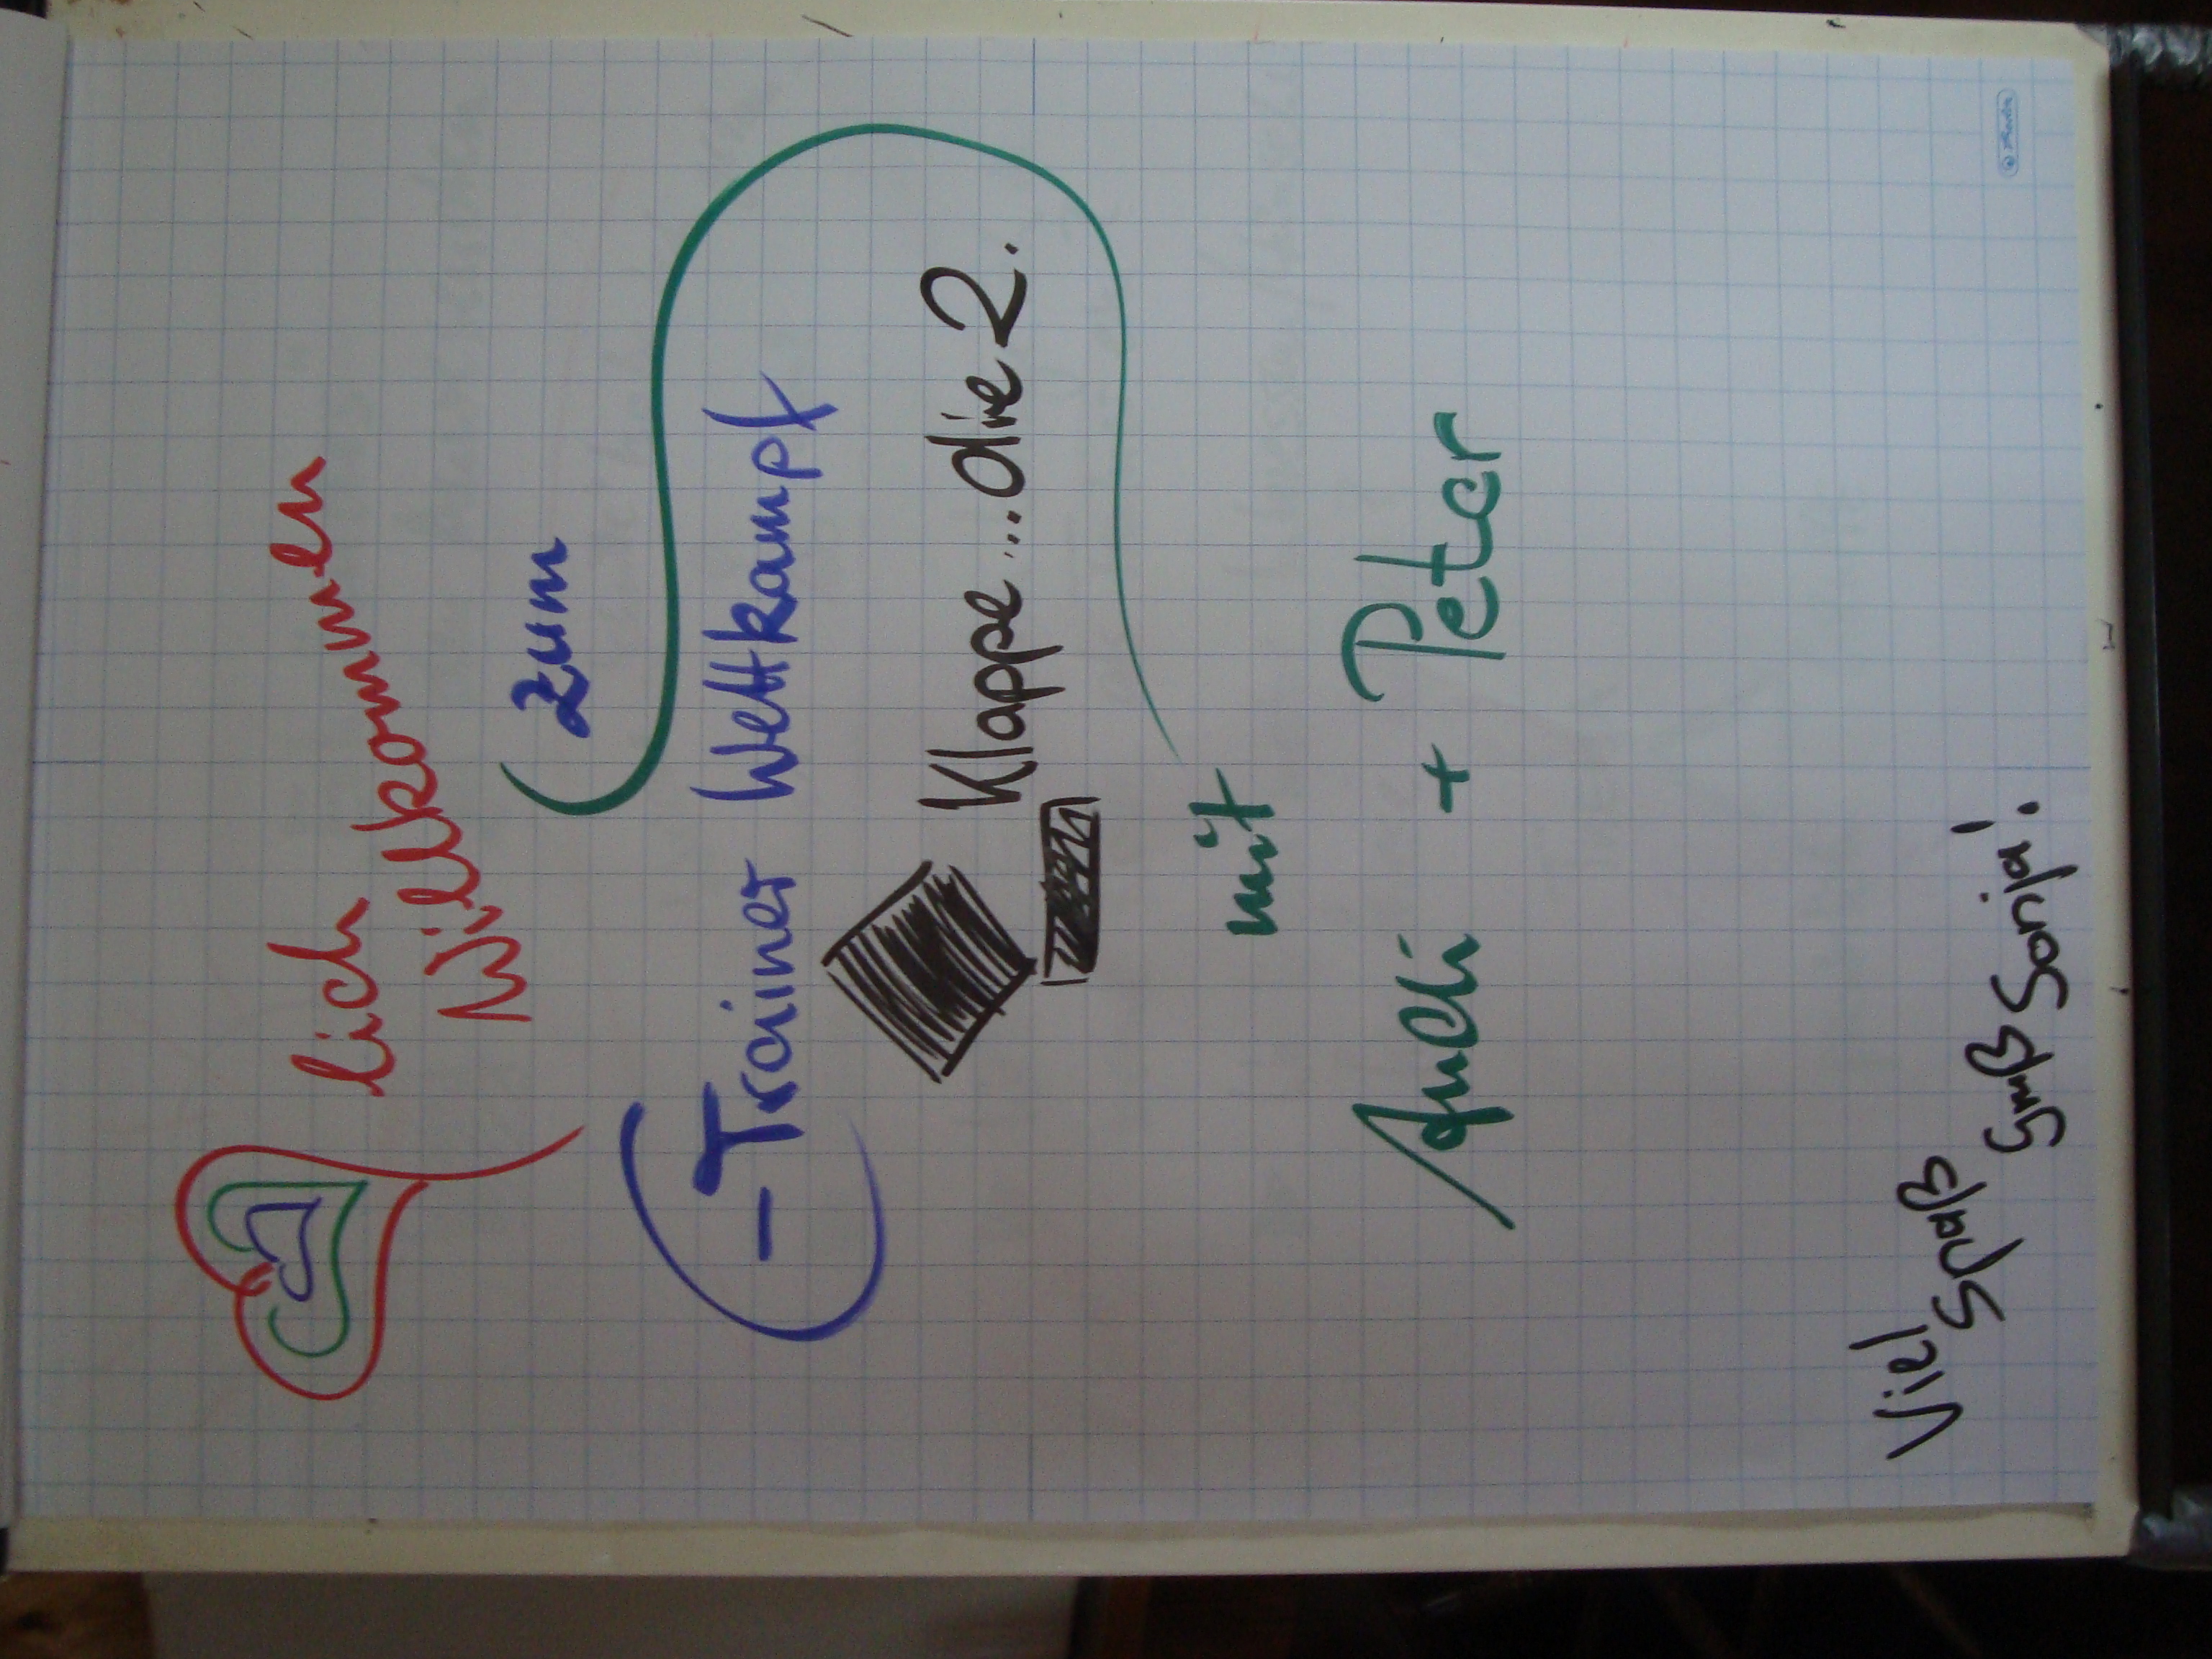 lich
Willkommen
zum
-Trainer Wettkampf
Klappe...die 2.
mit
Andi + Peter
Viel Spaß
Gruß Sonja!